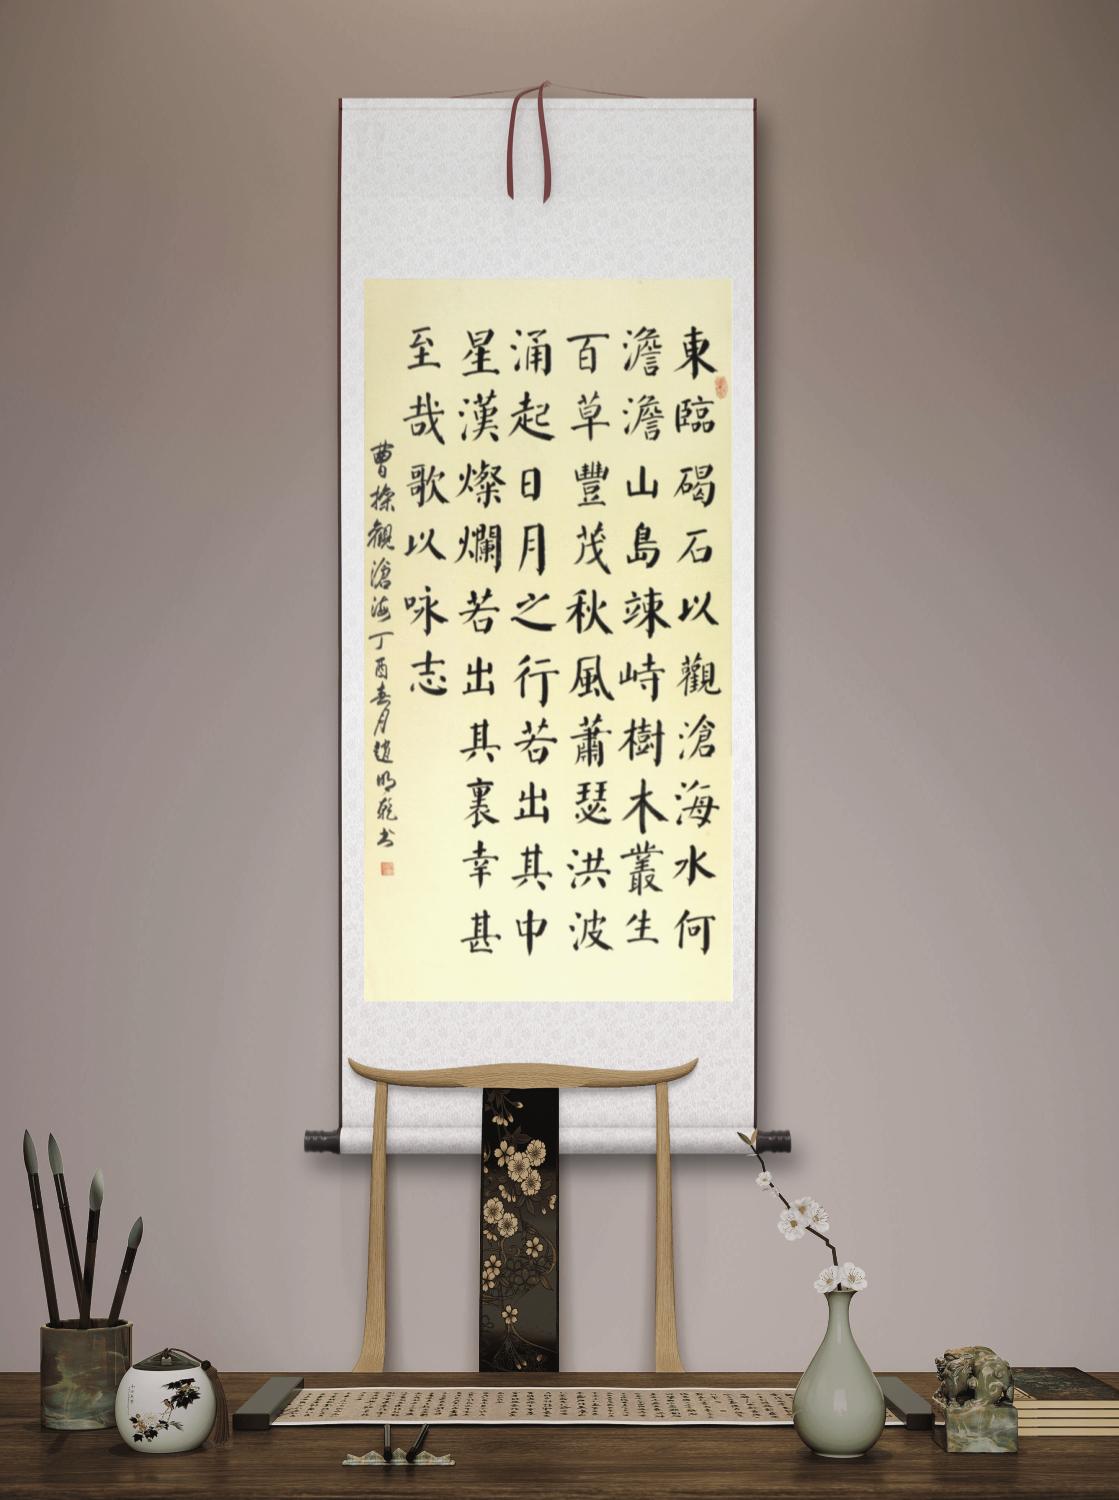 東臨碣石以觀滄海水何
澹澹山島竦峙樹木叢生
百草豐茂秋風蕭瑟洪波
涌起日月之行若出其中
星漢燦爛若出其裏幸甚
至哉歌以咏志
曹操觀滄海丁酉春月趙明书